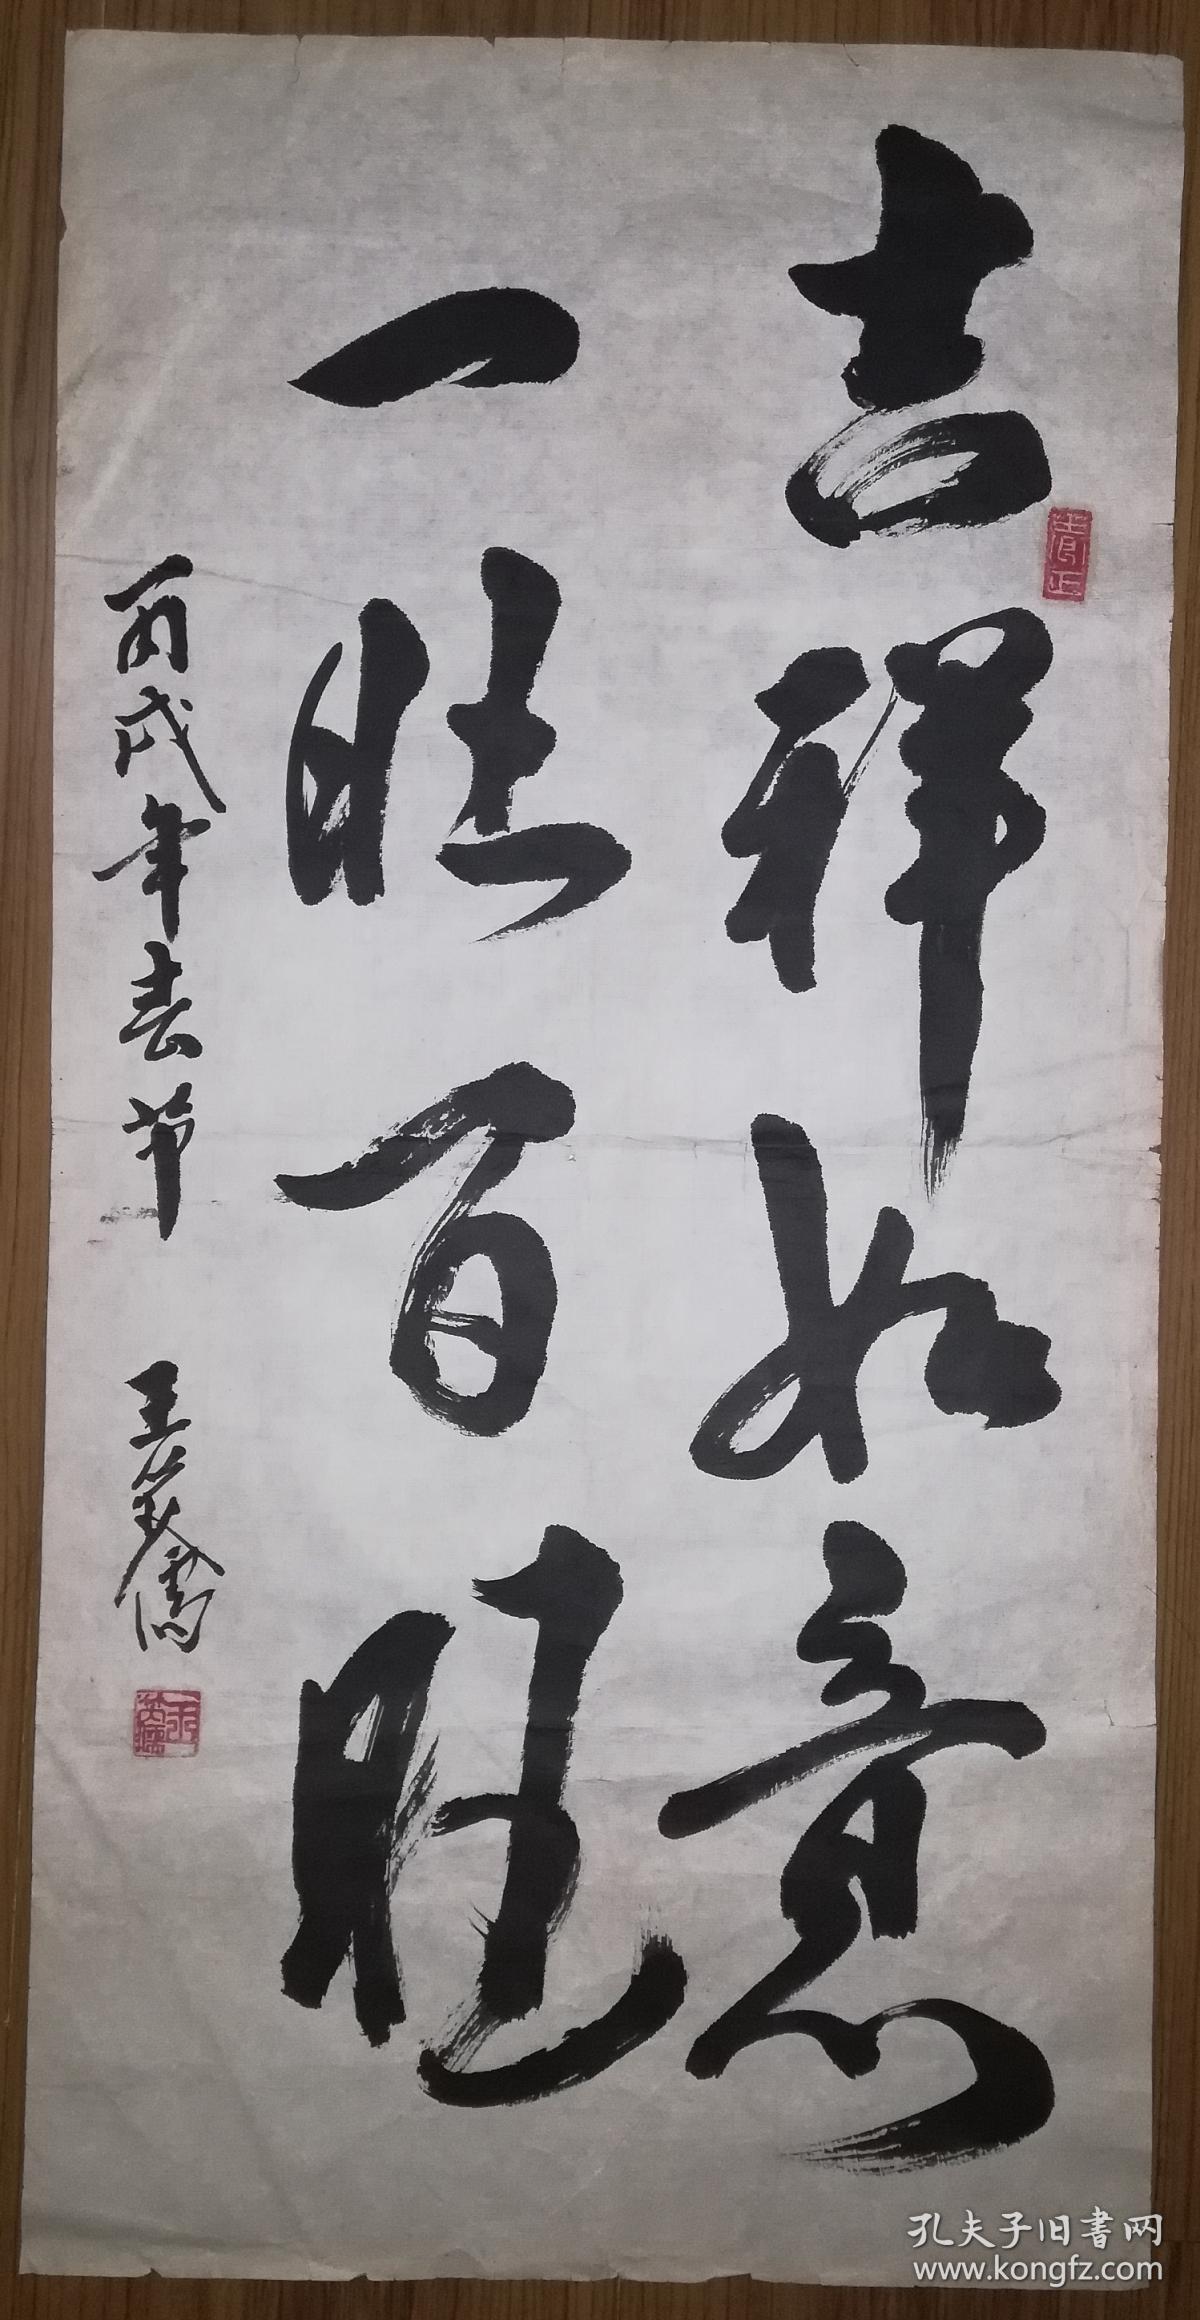 吉祥如意
一旺百旺
丙戌年春节
王
孔夫子旧書网
www.kongfz.com